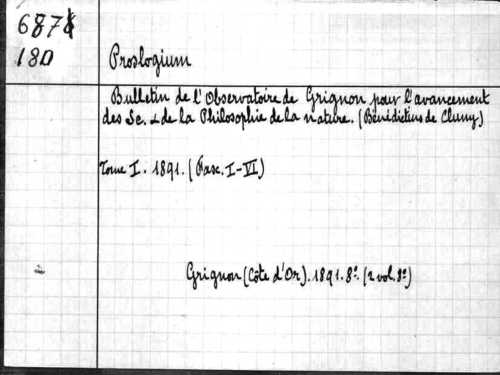 687
180
Proslogium
Bulletin de l'Observatoire de Grignon pour l'avancement
des Sc. & de la Philosophie de la nature. (Bénédictins de Cluny)
Tome I. 1891. (Fasc. I-VI)
Grignon (Côte d'Or). 1891. 8º. (2 vol. 8º)